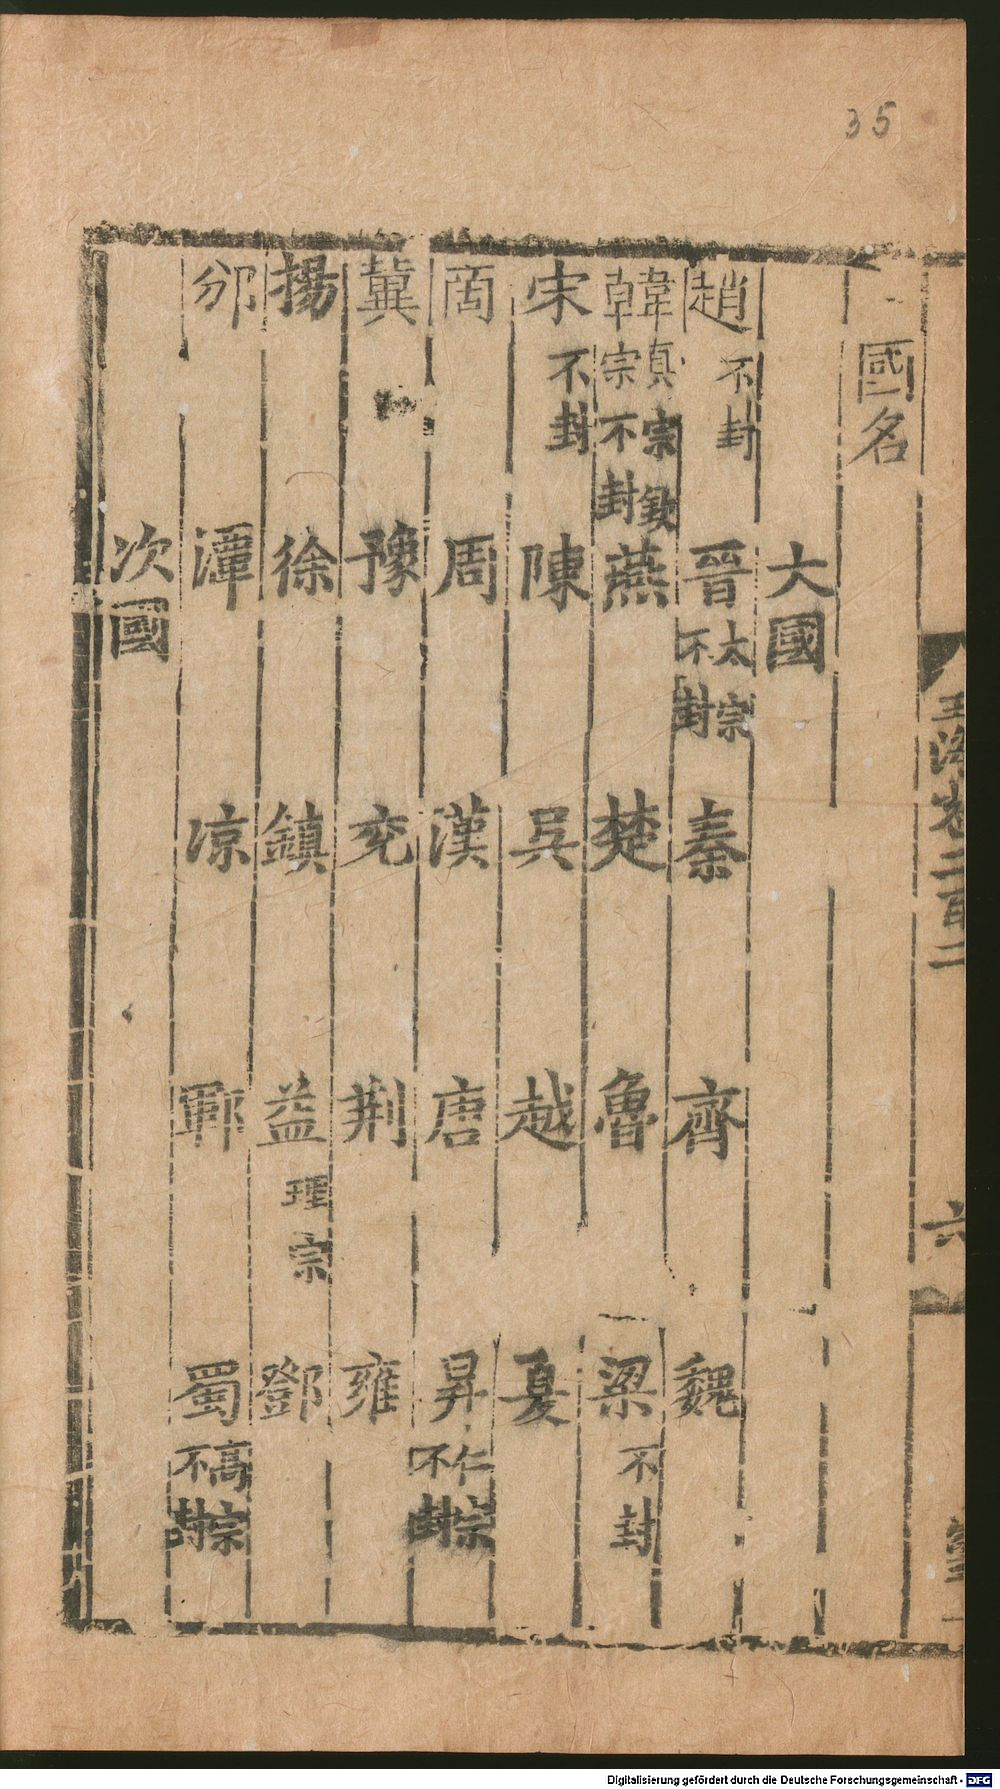 35
國名
大國
趙不封 晉太宗不封 秦 齊 魏
韓真宗欽宗不封 燕 楚 魯 梁不封
宋不封 陳 吳 越 夏
啇 周 漢 唐 昇仁宗不封
冀 豫 兖 荆 雍
揚 徐 鎮 益理宗 鄧
邠 潭 凉 鄆 蜀高宗不封
次國
玉海卷二百二
六
Digitalisierung gefördert durch die Deutsche Forschungsgemeinschaft - DFG